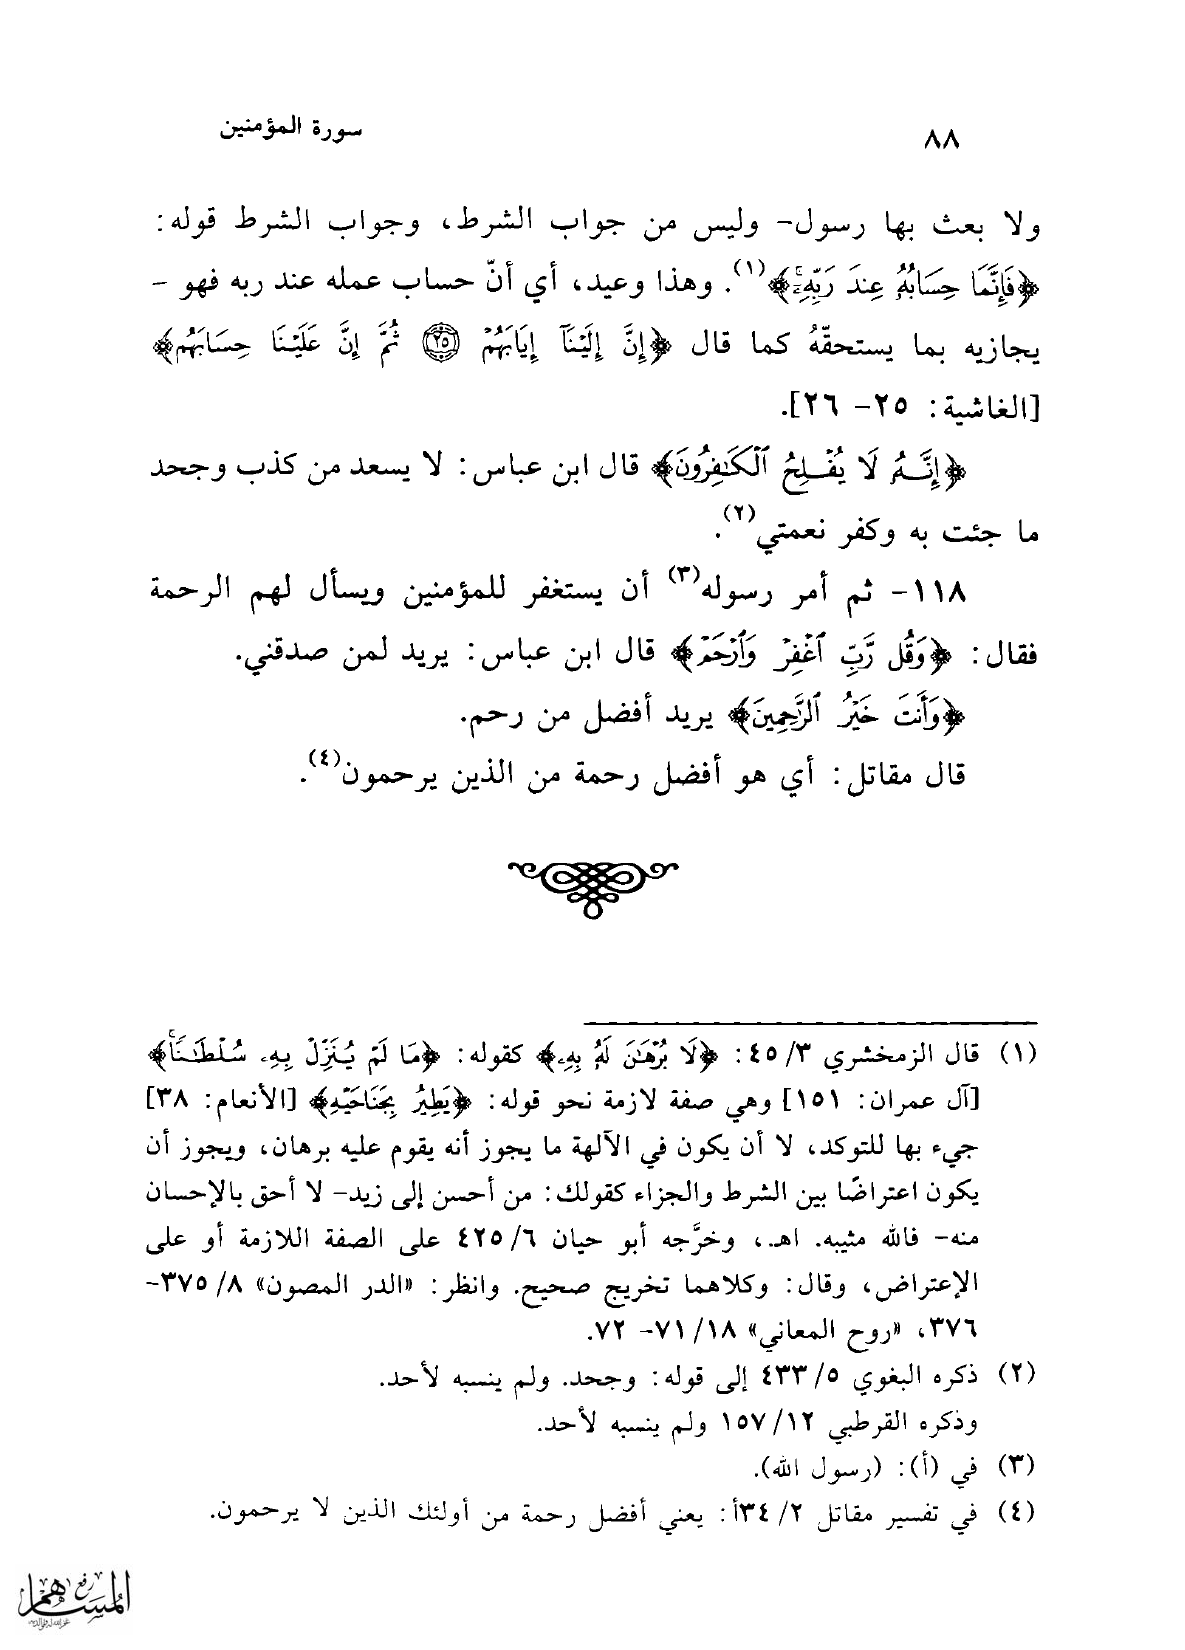 ٨٨
سورة المؤمنين
ولا بعث بها رسول- وليس من جواب الشرط، وجواب الشرط قوله:
﴿فَإِنَّمَا حِسَابُهُۥ عِندَ رَبِّهِۦٓۚ﴾(١). وهذا وعيد، أي أنّ حساب عمله عند ربه فهو -
يجازيه بما يستحقّهُ كما قال ﴿إِنَّ إِلَيْنَآ إِيَابَهُمْ ۝٢٥ ثُمَّ إِنَّ عَلَيْنَا حِسَابَهُم﴾
[الغاشية: ٢٥- ٢٦].
﴿إِنَّهُۥ لَا يُفْلِحُ ٱلْكَٰفِرُونَ﴾ قال ابن عباس: لا يسعد من كذب وجحد
ما جئت به وكفر نعمتي(٢).
١١٨- ثم أمر رسوله(٣) أن يستغفر للمؤمنين ويسأل لهم الرحمة
فقال: ﴿وَقُل رَّبِّ ٱغْفِرْ وَٱرْحَمْ﴾ قال ابن عباس: يريد لمن صدقني.
﴿وَأَنتَ خَيْرُ ٱلرَّٰحِمِينَ﴾ يريد أفضل من رحم.
قال مقاتل: أي هو أفضل رحمة من الذين يرحمون(٤).
(١) قال الزمخشري ٣/ ٤٥: ﴿لَا بُرْهَٰنَ لَهُۥ بِهِۦ﴾ كقوله: ﴿مَا لَمْ يُنَزِّلْ بِهِۦ سُلْطَٰنًاۚ﴾
[آل عمران: ١٥١] وهي صفة لازمة نحو قوله: ﴿يَطِيرُ بِجَنَاحَيْهِ﴾ [الأنعام: ٣٨]
جيء بها للتوكد، لا أن يكون في الآلهة ما يجوز أنه يقوم عليه برهان، ويجوز أن
يكون اعتراضًا بين الشرط والجزاء كقولك: من أحسن إلى زيد- لا أحق بالإحسان
منه- فالله مثيبه. اهـ.، وخرَّجه أبو حيان ٦/ ٤٢٥ على الصفة اللازمة أو على
الإعتراض، وقال: وكلاهما تخريج صحيح. وانظر: «الدر المصون» ٨/ ٣٧٥-
٣٧٦، «روح المعاني» ١٨/ ٧١- ٧٢.
(٢) ذكره البغوي ٥/ ٤٣٣ إلى قوله: وجحد. ولم ينسبه لأحد.
وذكره القرطبي ١٢/ ١٥٧ ولم ينسبه لأحد.
(٣) في (أ): (رسول الله).
(٤) في تفسير مقاتل ٢/ ٣٤أ: يعني أفضل رحمة من أولئك الذين لا يرحمون.
رفع
المساهم